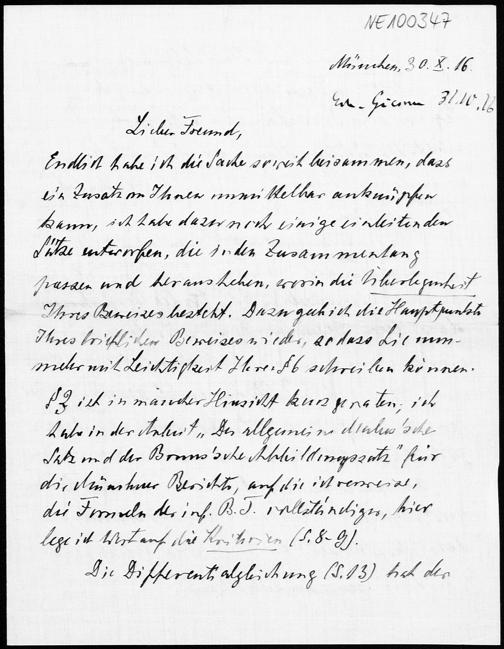 NE100347
München, 30. X. 16.
31.10.16
Lieber Freund,
Endlich habe ich die Sache soweit beisammen, dass
ein Zusatz von Ihnen unmittelbar anknüpfen
kann, ich habe dazu noch einige einleitenden
Sätze entworfen, die in den Zusammenhang
passen und herausheben, worin die Überlegenheit
Ihres Beweises besteht. Dazu geb ich die Hauptpunkte
Ihres brieflichen Beweises wieder, so dass Sie nun-
mehr mit Leichtigkeit Ihre § 6 schreiben können.
§ 3 ist in mancher Hinsicht kurz geraten; ich
habe in der Arbeit "Der allgemeine Malus'sche
Satz und der Bruns'sche Abbildungssatz" für
die Münchner Berichte, auf die ich verweise,
die Formeln der inf. B. T. vollständiger, hier
lege ich Wert auf die Kriterien (S. 8-9).
Die Differentialgleichung (S. 13) hat der